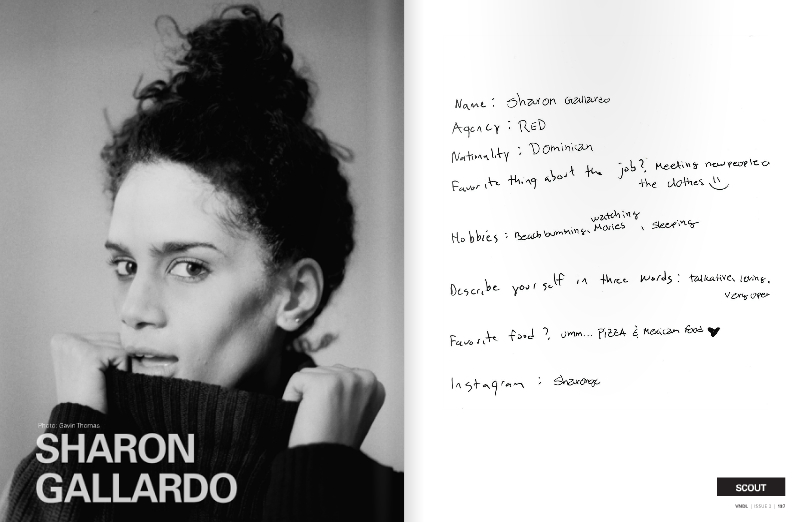 Photo: Gavin Thomas
SHARON
GALLARDO
Name : Sharon Gallardo
Agency : RED
Nationality : Dominican
Favorite thing about the job?, Meeting new people &
the clothes
watching
Hobbies : Beach bumming, Movies , sleeping
Describe yourself in three words : talkative, loving,
very open
Favorite food ?, umm... PIZZA & Mexican food ♥
Instagram :
SCOUT
VNDL | ISSUE 2 | 187